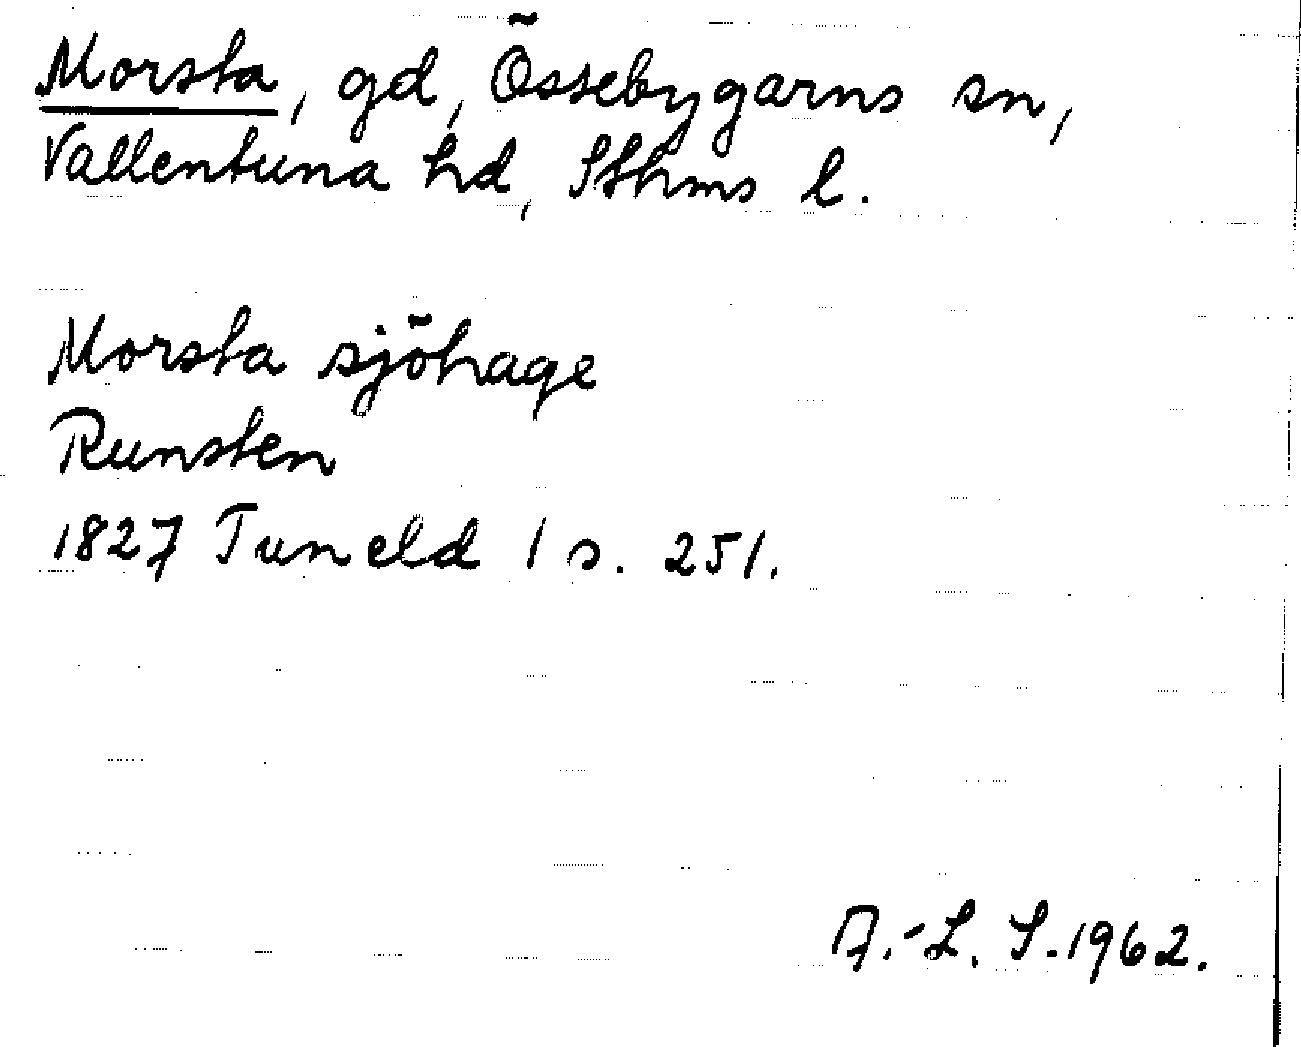 Morsta, gd, Össebygarns sn,
Vallentuna hd, Sthms l.
Morsta sjöhage
Runsten
1827 Tuneld 1 s. 251.
A.-L. S. 1962.